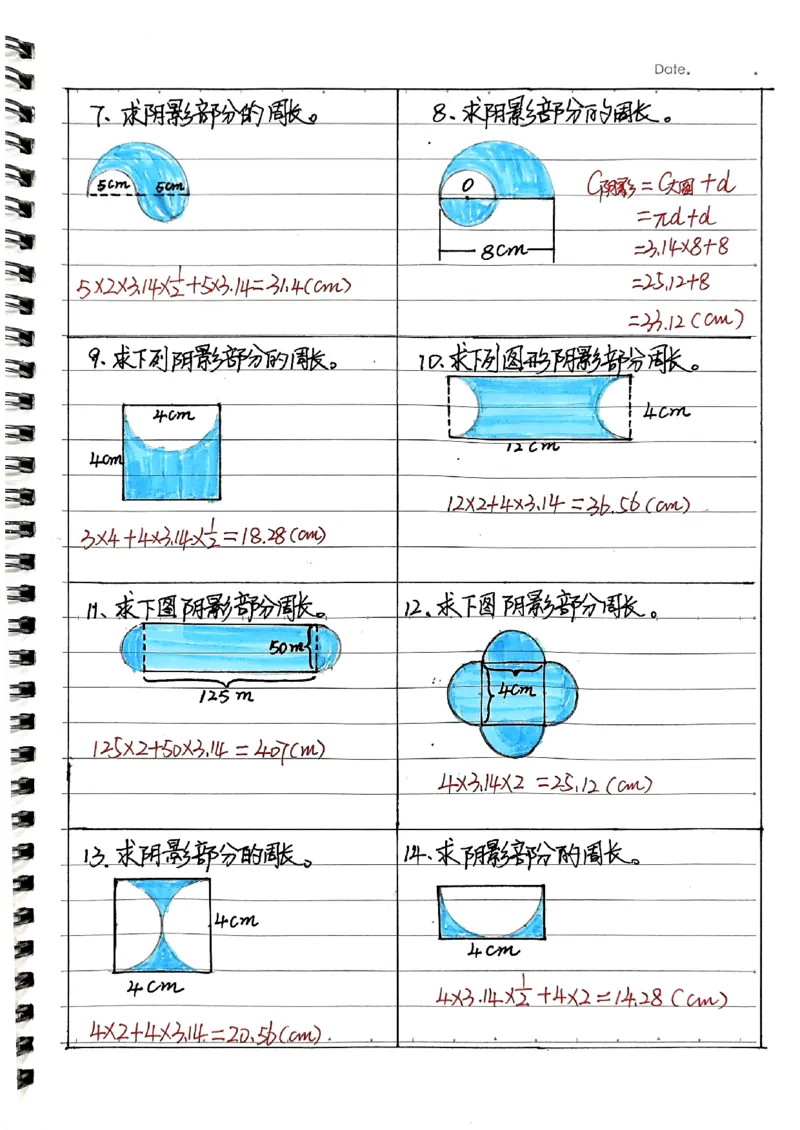 Date.
7、求阴影部分的周长。
5cm 5cm
5×2×3.14×1/2+5×3.14=31.4(cm)
8、求阴影部分的周长。
O
8cm
C阴影=C大圆+d
=πd+d
=3.14×8+8
=25.12+8
=33.12(cm)
9、求下列阴影部分的周长。
4cm
4cm
3×4+4×3.14×1/2=18.28(cm)
10、求下列图形阴影部分周长。
4cm
12cm
12×2+4×3.14=36.56(cm)
11、求下图阴影部分周长。
50m
125m
125×2+50×3.14=407(m)
12、求下图阴影部分周长。
4cm
4×3.14×2=25.12(cm)
13、求阴影部分的周长。
4cm
4cm
4×2+4×3.14=20.56(cm)
14、求阴影部分的周长。
4cm
4×3.14×1/2+4×2=14.28(cm)